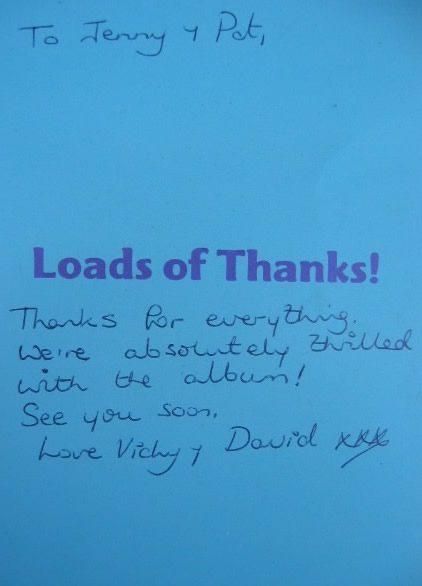 To Jenny & Pat,
Loads of Thanks!
Thanks for everything.
We're absolutely thrilled
with the album!
See you soon,
Love Vicky & David xxx